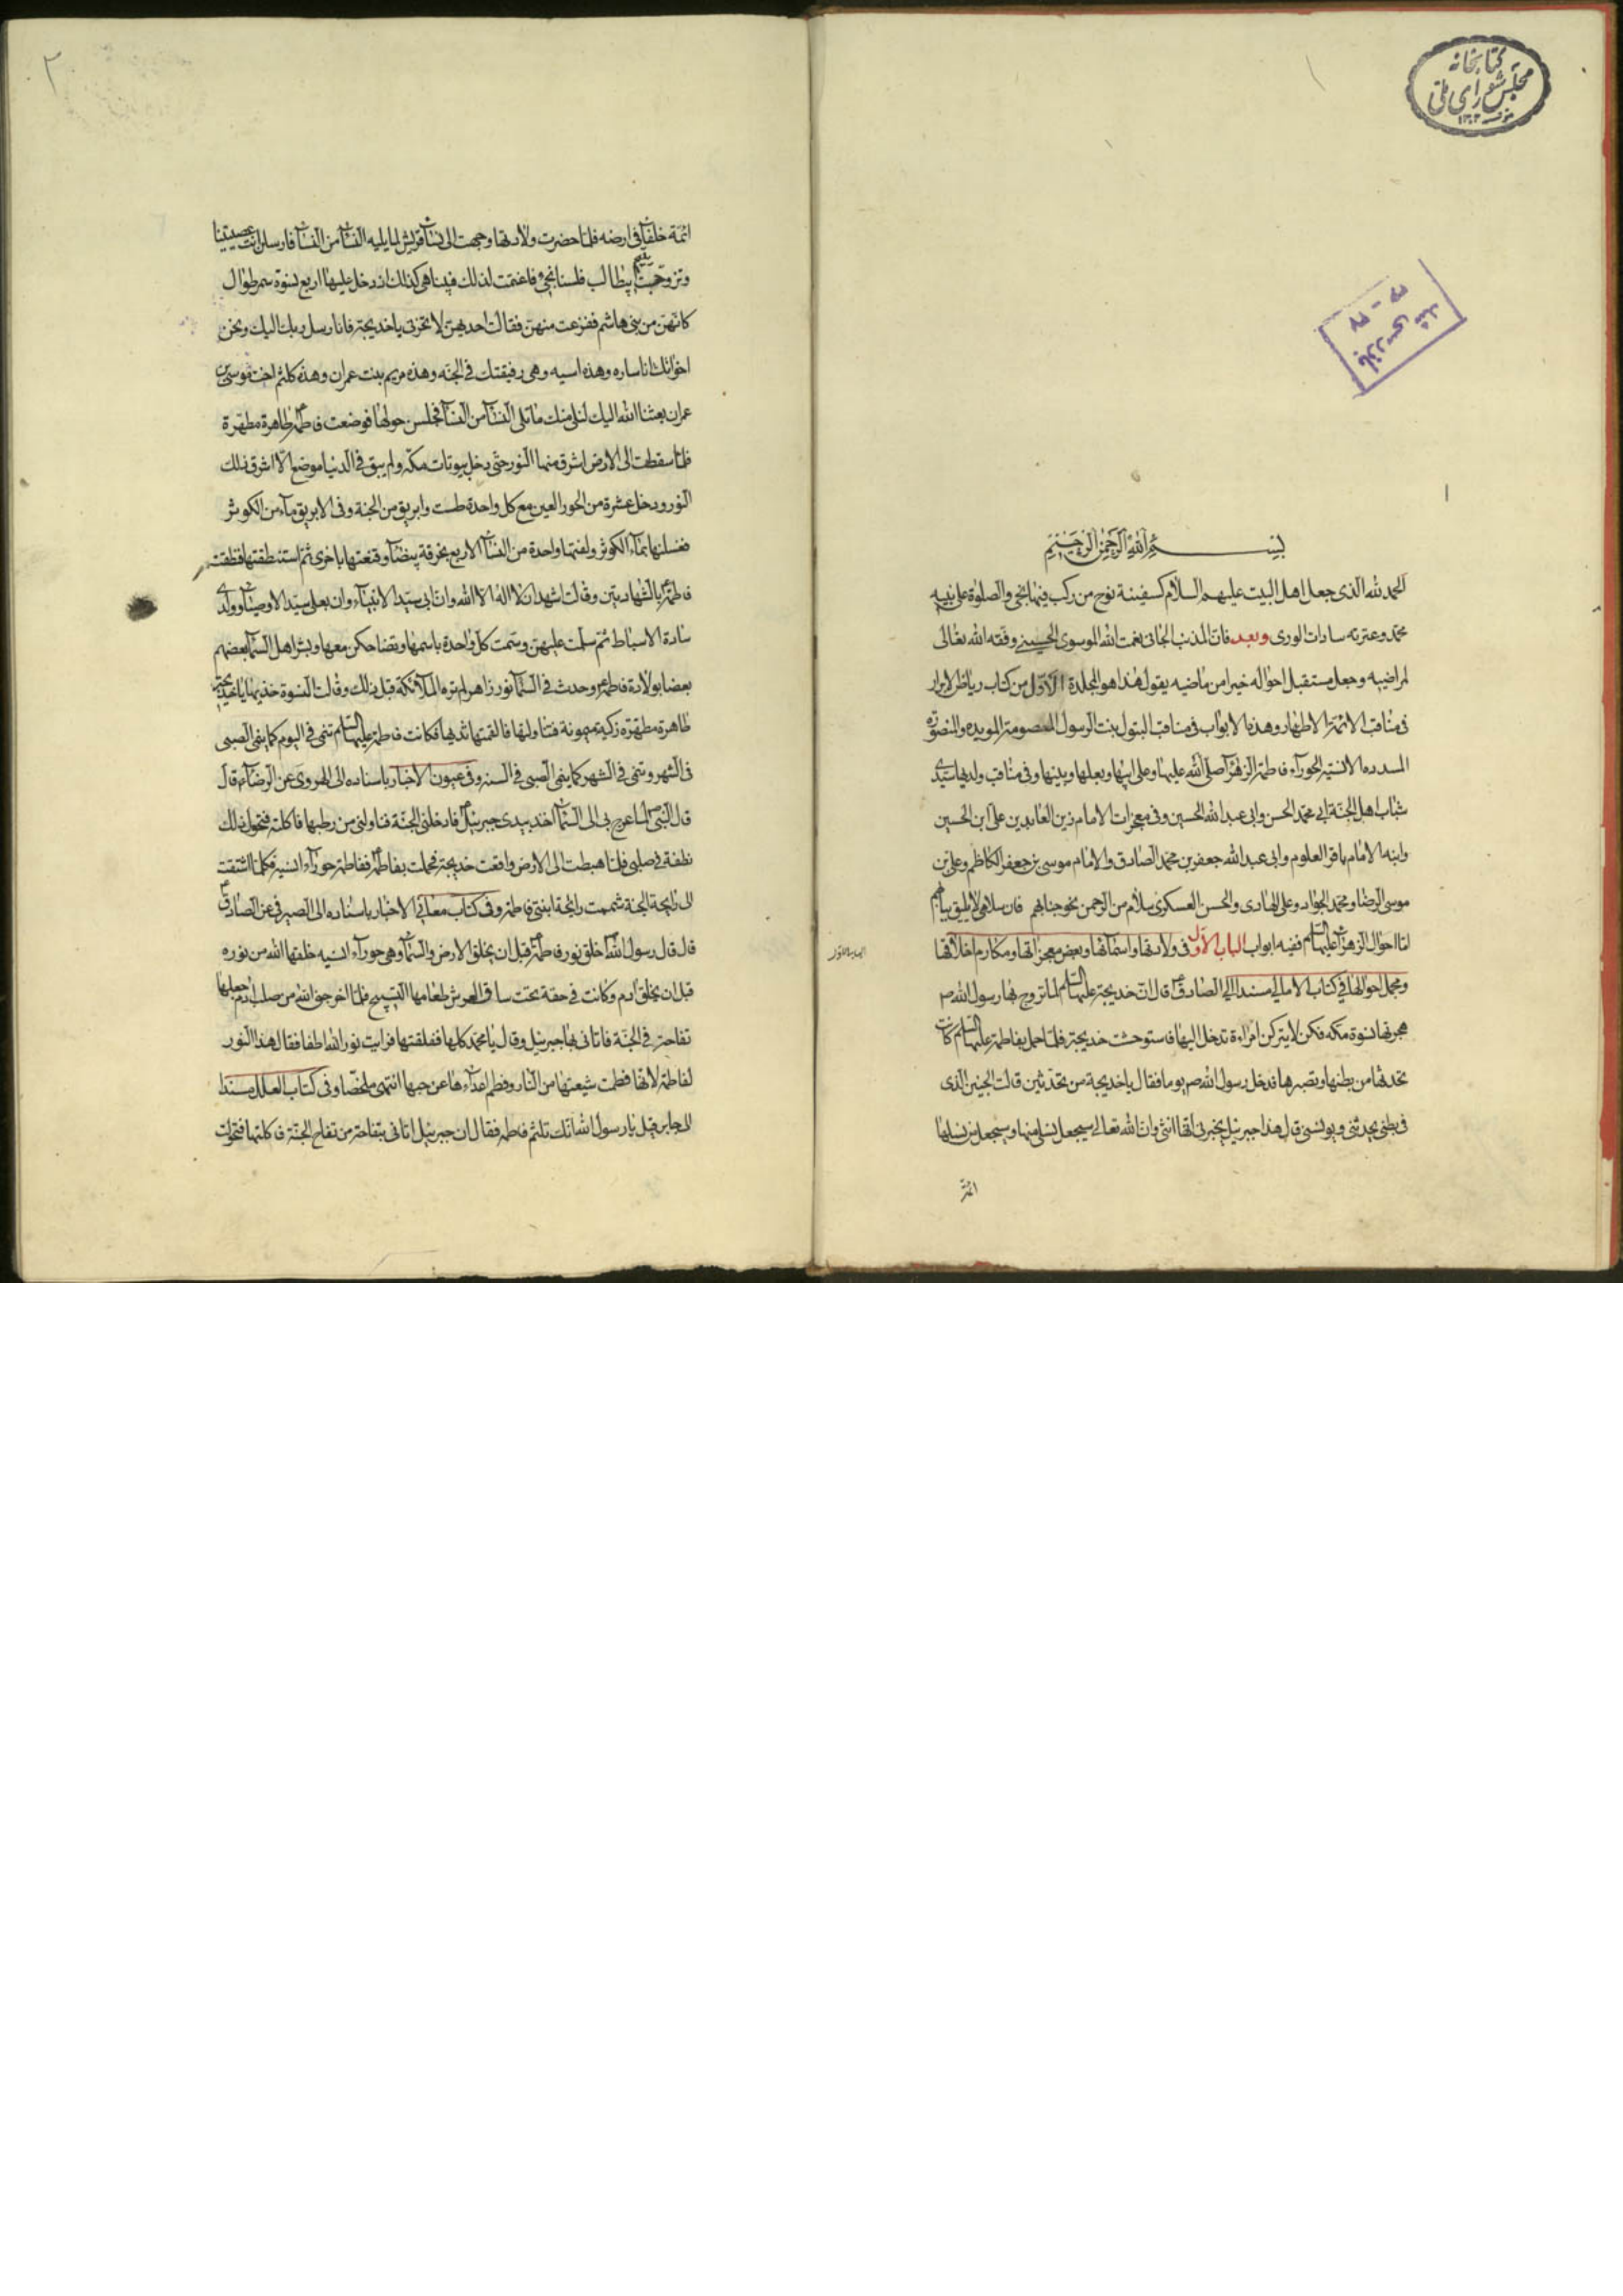 كتابخانه
مجلس شورای ملی
١٣٠٢
بازرسی شد
٣٧ -
١
بسم الله الرحمن الرحيم
الحمد لله الذى جعل اهل البيت عليهم السلام كسفينة نوح من ركب فيها نجى والصلوة على نبيه
محمد وعترته سادات الورى وبعد فان المذنب الجانى نعمت الله الموسوى الحسينى وفقه الله تعالى
لمراضيه وجعل مستقبل احواله خيرا من ماضيه يقول هذا هو المجلدة الاول من كتاب رياض الابرار
فى مناقب الائمة الاطهار وهذه الابواب فى مناقب البتول بنت الرسول المعصومة المويده والمنصوره
المسدده الانسية الحوراء فاطمة الزهراء صلى الله عليها وعلى ابيها وبعلها وبنيها وفى مناقب ولديها سيدى
شباب اهل الجنة ابى محمد الحسن وابى عبدالله الحسين وفى معجزات الامام زين العابدين على ابن الحسين
وابنه الامام باقر العلوم وابى عبدالله جعفر بن محمد الصادق والامام موسى بن جعفر الكاظم وعلى بن
موسى الرضا ومحمد الجواد وعلى الهادى والحسن العسكرى سلام من الرحمن نحو جنابهم فان سلامى لا يليق ببابهم
اما احوال الزهراء عليها السلام ففيه ابواب الباب الاول فى ولادتها واسمائها وبعض معجزاتها ومكارم اخلاقها
ومجمل احوالها فى كتاب الامالى مسندا الى الصادق ع قال ان خديجة عليها السلم لما تزوج بها رسول الله ص
هجرتها نسوة مكه فكن لا يتركن امراءة تدخل اليها فاستوحشت خديجة فلما حمل بفاطمة عليها السلم كانت
تحدثها من بطنها وتصبرها فدخل رسول الله ص يوما فقال يا خديجة من تحدثين قالت الجنين الذى
فى بطنى يحدثنى ويونسنى قال هذا جبرئيل يخبرنى انها انثى وان الله تعالى سيجعل نسلى منها وسيجعل من نسلها
ائمة
٢
ائمة خلفاء فى ارضه فلما حضرت ولادتها وجهت الى نساء قريش لما يليه النساء من النساء فارسلن انت عصيتينا
وتزوجت يتيم ابيطالب فلسنا نجىء فاغتمت لذلك فبينا هى كذلك اذ دخل عليها اربع نسوة سمر طوال
كانهن من بنى هاشم ففزعت منهن فقالت احديهن لا تحزنى يا خديجة فانا رسل ربك اليك ونحن
اخواتك انا ساره وهذه اسيه وهى رفيقتك فى الجنه وهذه مريم بنت عمران وهذه كلثم اخت موسى بن
عمران بعثنا الله اليك لنلى منك ما تلى النساء من النساء فجلسن حولها فوضعت فاطمة ع طاهرة مطهرة
فلما سقطت الى الارض اشرق منها النور حتى دخل بيوتات مكه ولم يبق فى الدنيا موضع الا اشرق ذلك
النور ودخل عشرة من الحور العين مع كل واحدة طست وابريق من الجنة وفى الابريق ماء من الكوثر
فغسلنها بماء الكوثر ولفتها واحدة من النساء الاربع بخرقة بيضاء وقنعتها باخرى ثم استنطقتها فنطقت
فاطمة ع بالشهادتين وقالت اشهد ان لا اله الا الله وان ابى سيد الانبياء وان بعلى سيد الاوصياء وولدى
سادة الاسباط ثم سلمت عليهن وسمت كل واحدة باسمها وتضاحكن معها وبشر اهل السماء بعضهم
بعضا بولادة فاطمة ع وحدث فى السماء نور زاهر لم تره الملائكة قبل ذلك وقالت النسوة خذيها يا خديجة
طاهرة مطهرة زكية ميمونة فتناولتها فالقمتها ثديها فكانت فاطمة عليها السلم تنمى فى اليوم كما ينمى الصبى
فى الشهر وتنمى فى الشهر كما ينمى الصبى فى السنه وفى عيون الاخبار باسناده الى الهروى عن الرضا ع قال
قال النبى ص لما عرج بى الى السماء اخذ بيدى جبرئيل ع فادخلنى الجنة فناولنى من رطبها فاكلته فتحول ذلك
نطفة فى صلبى فلما هبطت الى الارض واقعت خديجة فحملت بفاطمة ففاطمة حوراء انسية فكلما اشتقت
الى رايحة الجنة شممت رايحة ابنتى فاطمة وفى كتاب معانى الاخبار باسناده الى الصيرفى عن الصادق ع
قال قال رسول الله ص خلق نور فاطمة قبل ان يخلق الارض والسماء وهى حوراء انسيه خلقها الله من نوره
قبل ان يخلق ادم وكانت فى حقة تحت ساق العرش طعامها التسبيح فلما اخرجنى الله من صلب ادم جعلها
تفاحة فى الجنة فاتانى بها جبرئيل وقال يا محمد كلها ففلقتها فرايت نور الله اطفا فقال هذا النور
لفاطمة لانها فطمت شيعتها من النار وفطم اعداءها عن حبها انتهى ملخصا وفى كتاب العلل مسندا
الى جابر قيل يا رسول الله انك تلثم فاطمه فقال ان جبرئيل اتانى بتفاحة من تفاح الجنة فاكلتها فتحولت